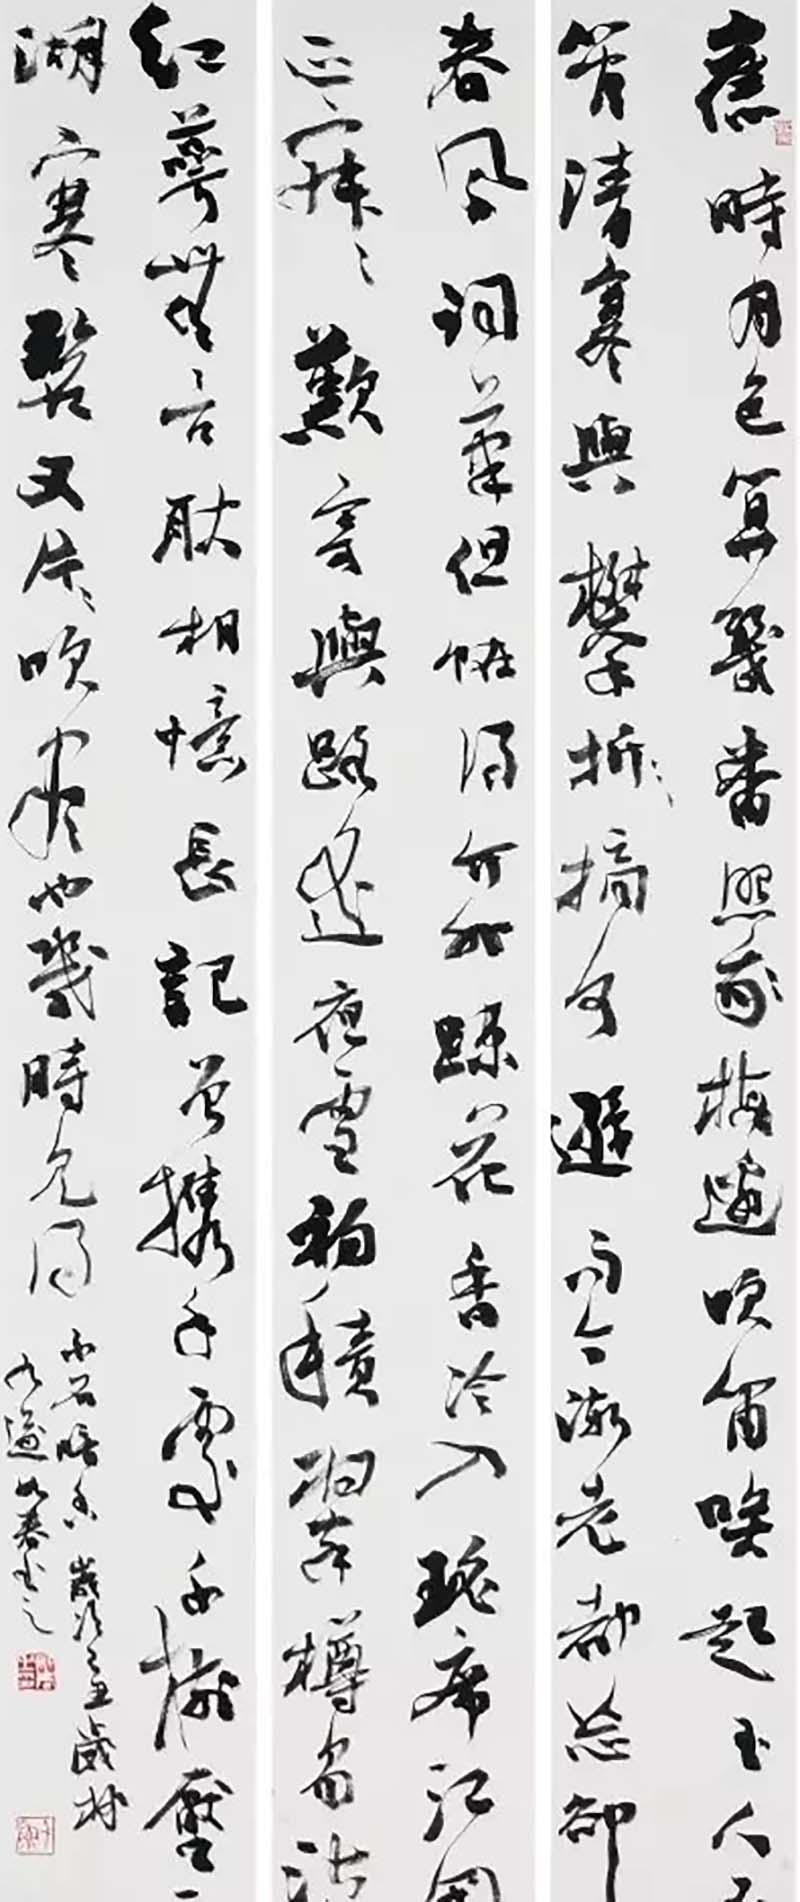 舊時月色算幾番照我梅邊吹笛喚起玉人不
管清寒與攀折摘何遜而今漸老都忘卻
春風詞筆但怪得竹外疎花香冷入瑤席江國
正寂〻歎寄與路遙夜雪初積翠樽易泣
紅萼無言耿相憶長記曾攜手處千樹壓
湖寒碧又片〻吹盡也幾時見得
白石暗香歲次
春書之